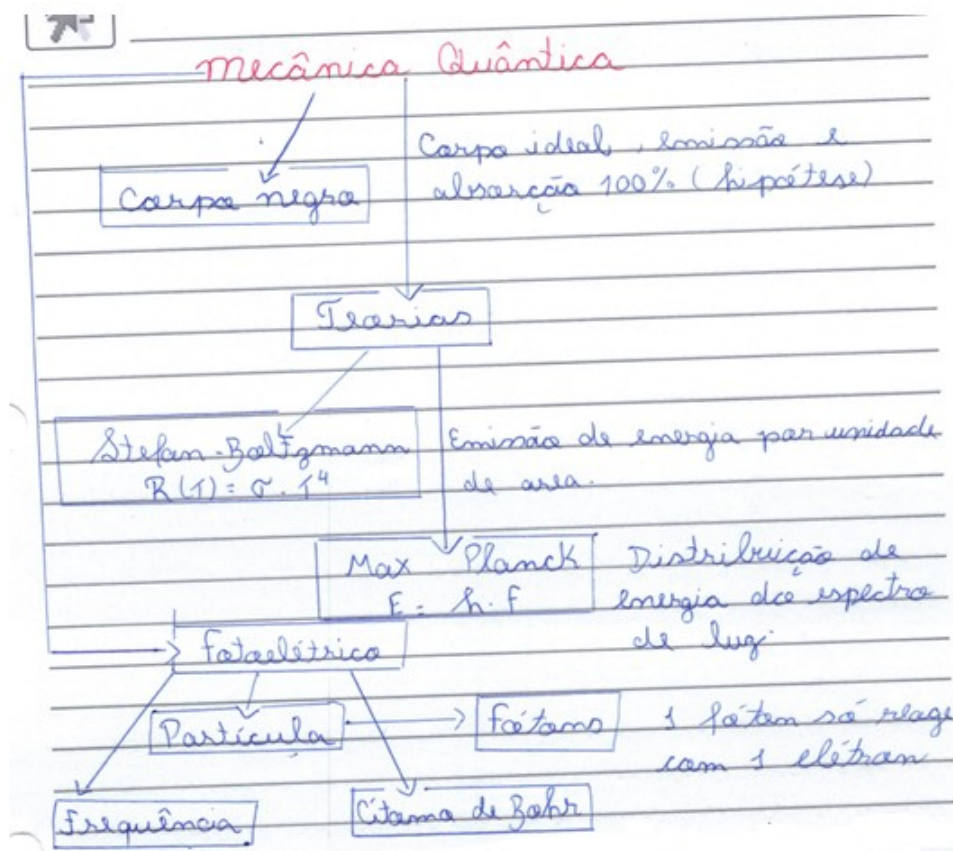 Mecânica Quântica
Corpo negro
Corpo ideal, emissão e
absorção 100% (hipótese)
Teorias
Stefan-Boltzmann
R(T) = σ . T⁴
Emissão de energia por unidade
de area.
Max Planck
E = h . f
Distribuição de
energia do espectro
de luz.
Fotoelétrico
Partícula
Fótons
1 fóton só reage
com 1 elétron
Frequência
Átomo de Bohr